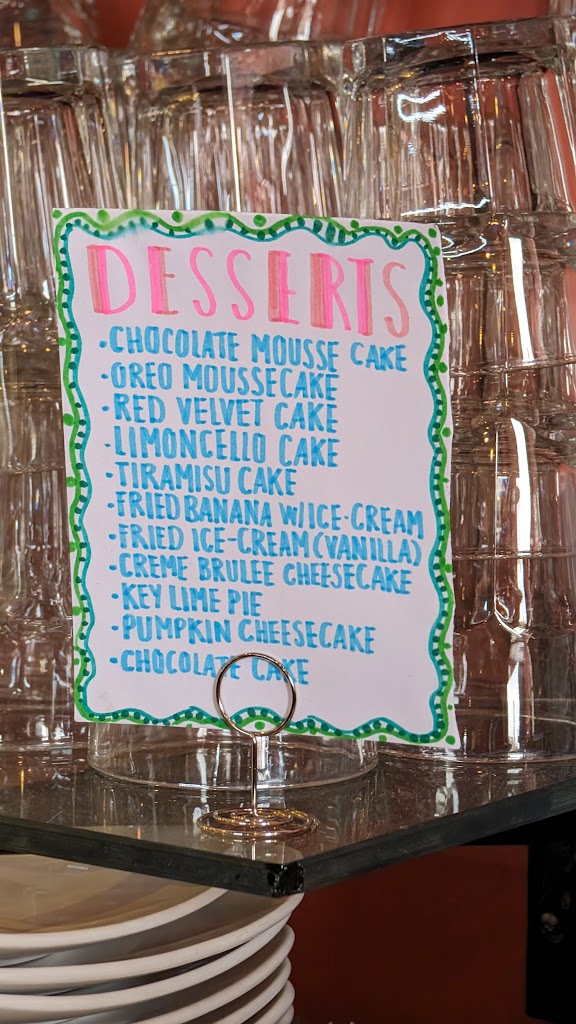 DESSERTS
·CHOCOLATE MOUSSE CAKE
·OREO MOUSSECAKE
·RED VELVET CAKE
·LIMONCELLO CAKE
·TIRAMISU CAKE
·FRIED BANANA W/ICE-CREAM
·FRIED ICE-CREAM(VANILLA)
·CREME BRULEE CHEESECAKE
·KEY LIME PIE
·PUMPKIN CHEESECAKE
·CHOCOLATE CAKE